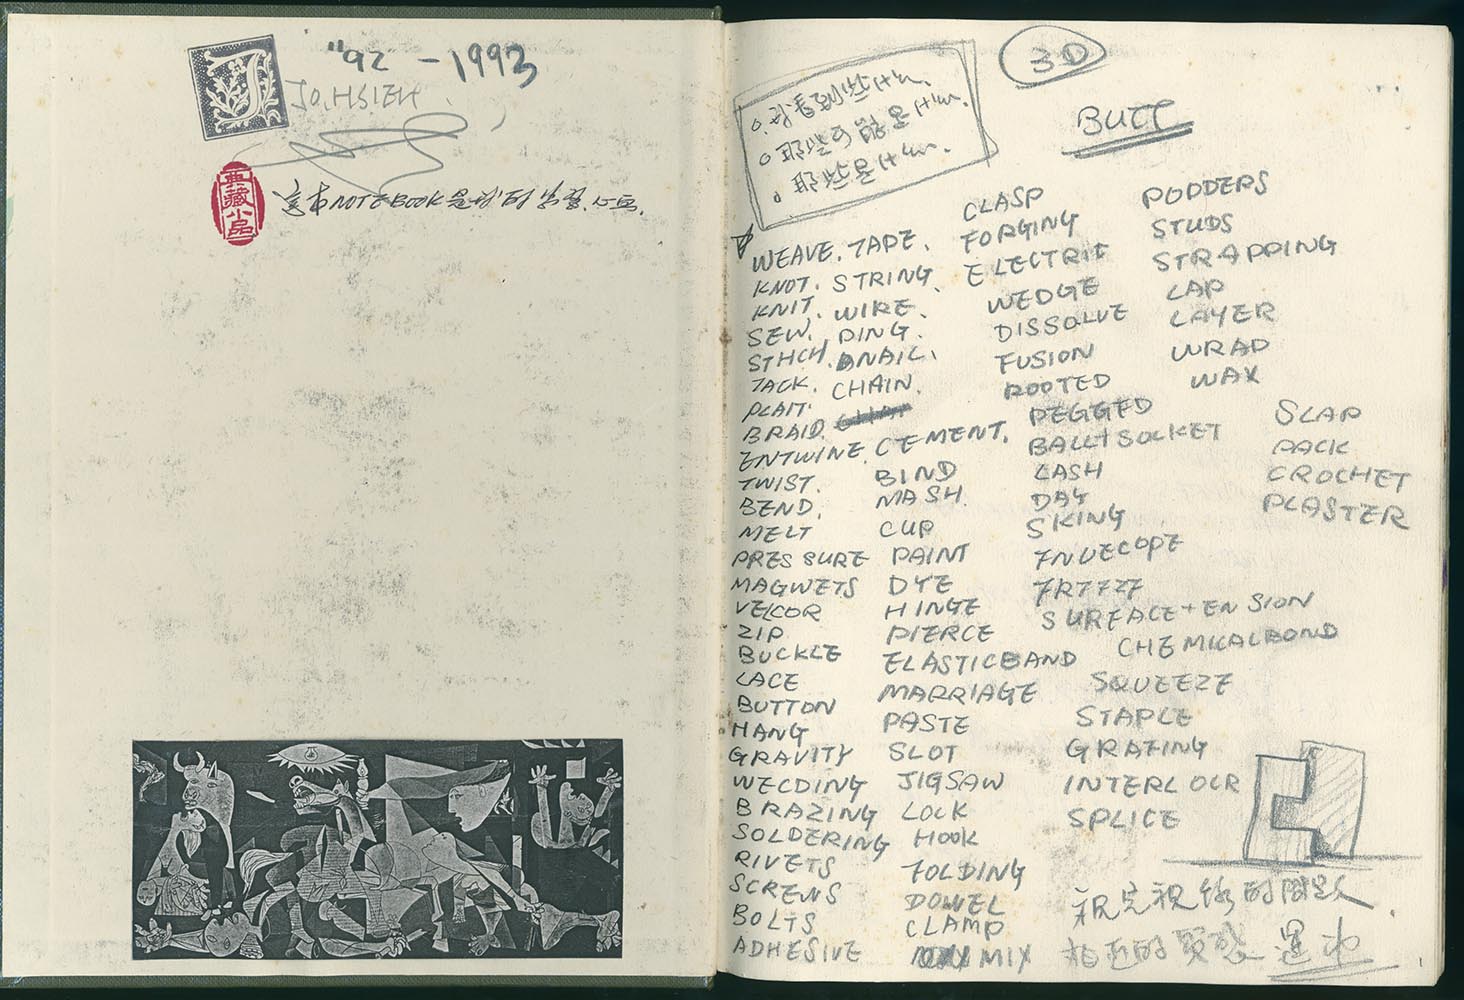 "92 - 1993
JO. HSIEH.
典藏小品
這本NOTEBOOK是我的
3D
BUTT
WEAVE. TAPE.
KNOT. STRING
KNIT. WIRE.
SEW. DING.
STHCH. NAIL.
TACK. CHAIN.
PLAIT.
BRAID.
ENTWINE. CEMENT.
TWIST. BIND
BEND. MASH
MELT CUP
PRESSURE PAINT
MAGWETS DYE
VELCOR HINGE
ZIP PIERCE
BUCKLE ELASTICBAND
LACE MARRIAGE
BUTTON PASTE
HANG SLOT
GRAVITY JIGSAW
WELDING LOCK
BRAZING HOOK
SOLDERING FOLDING
RIVETS DOWEL
SCREWS CLAMP
BOLTS MIX
ADHESIVE
CLASP
FORGING
ELECTRIC
WEDGE
DISSOLVE
FUSION
ROOTED
PEGGED
BALL+SOCKET
LASH
DAY
SKING
ENVECOPE
SURFACE+ENSION
CHEMICALBOND
SQUEEZE
STAPLE
GRAFING
INTERLOCR
SPLICE
PODDERS
STUDS
STRAPPING
LAP
LAYER
WRAD
WAX
SLAP
PACK
CROCHET
PLASTER